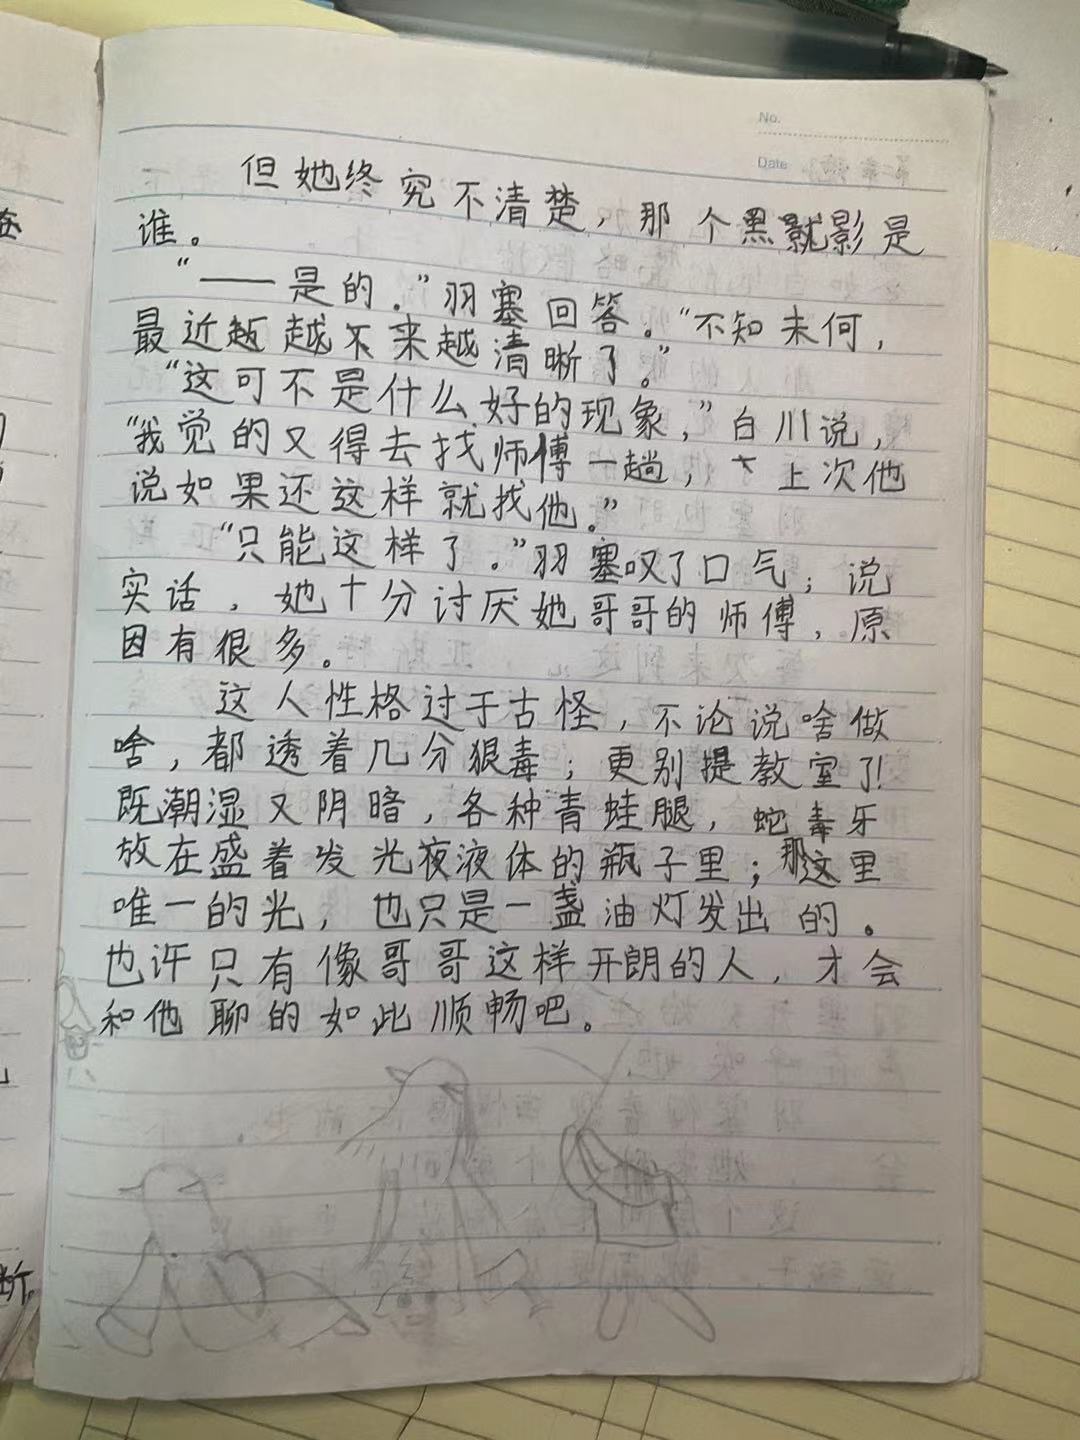 No.
Date
但她终究不清楚，那个黑影是
谁。
“——是的．”羽塞回答。“不知未何，
最近越来越清晰了。”
“这可不是什么好的现象，”白川说，
“我觉的又得去找师傅一趟，上次他
说如果还这样就找他．”
“只能这样了．”羽塞叹了口气；说
实话，她十分讨厌她哥哥的师傅，原
因有很多．
这人性格过于古怪，不论说啥做
啥，都透着几分狠毒；更别提教室了！
既潮湿又阴暗，各种青蛙腿，蛇毒牙
放在盛着发光液体的瓶子里；这里
唯一的光，也只是一盏油灯发出的。
也许只有像哥哥这样开朗的人，才会
和他聊的如此顺畅吧。